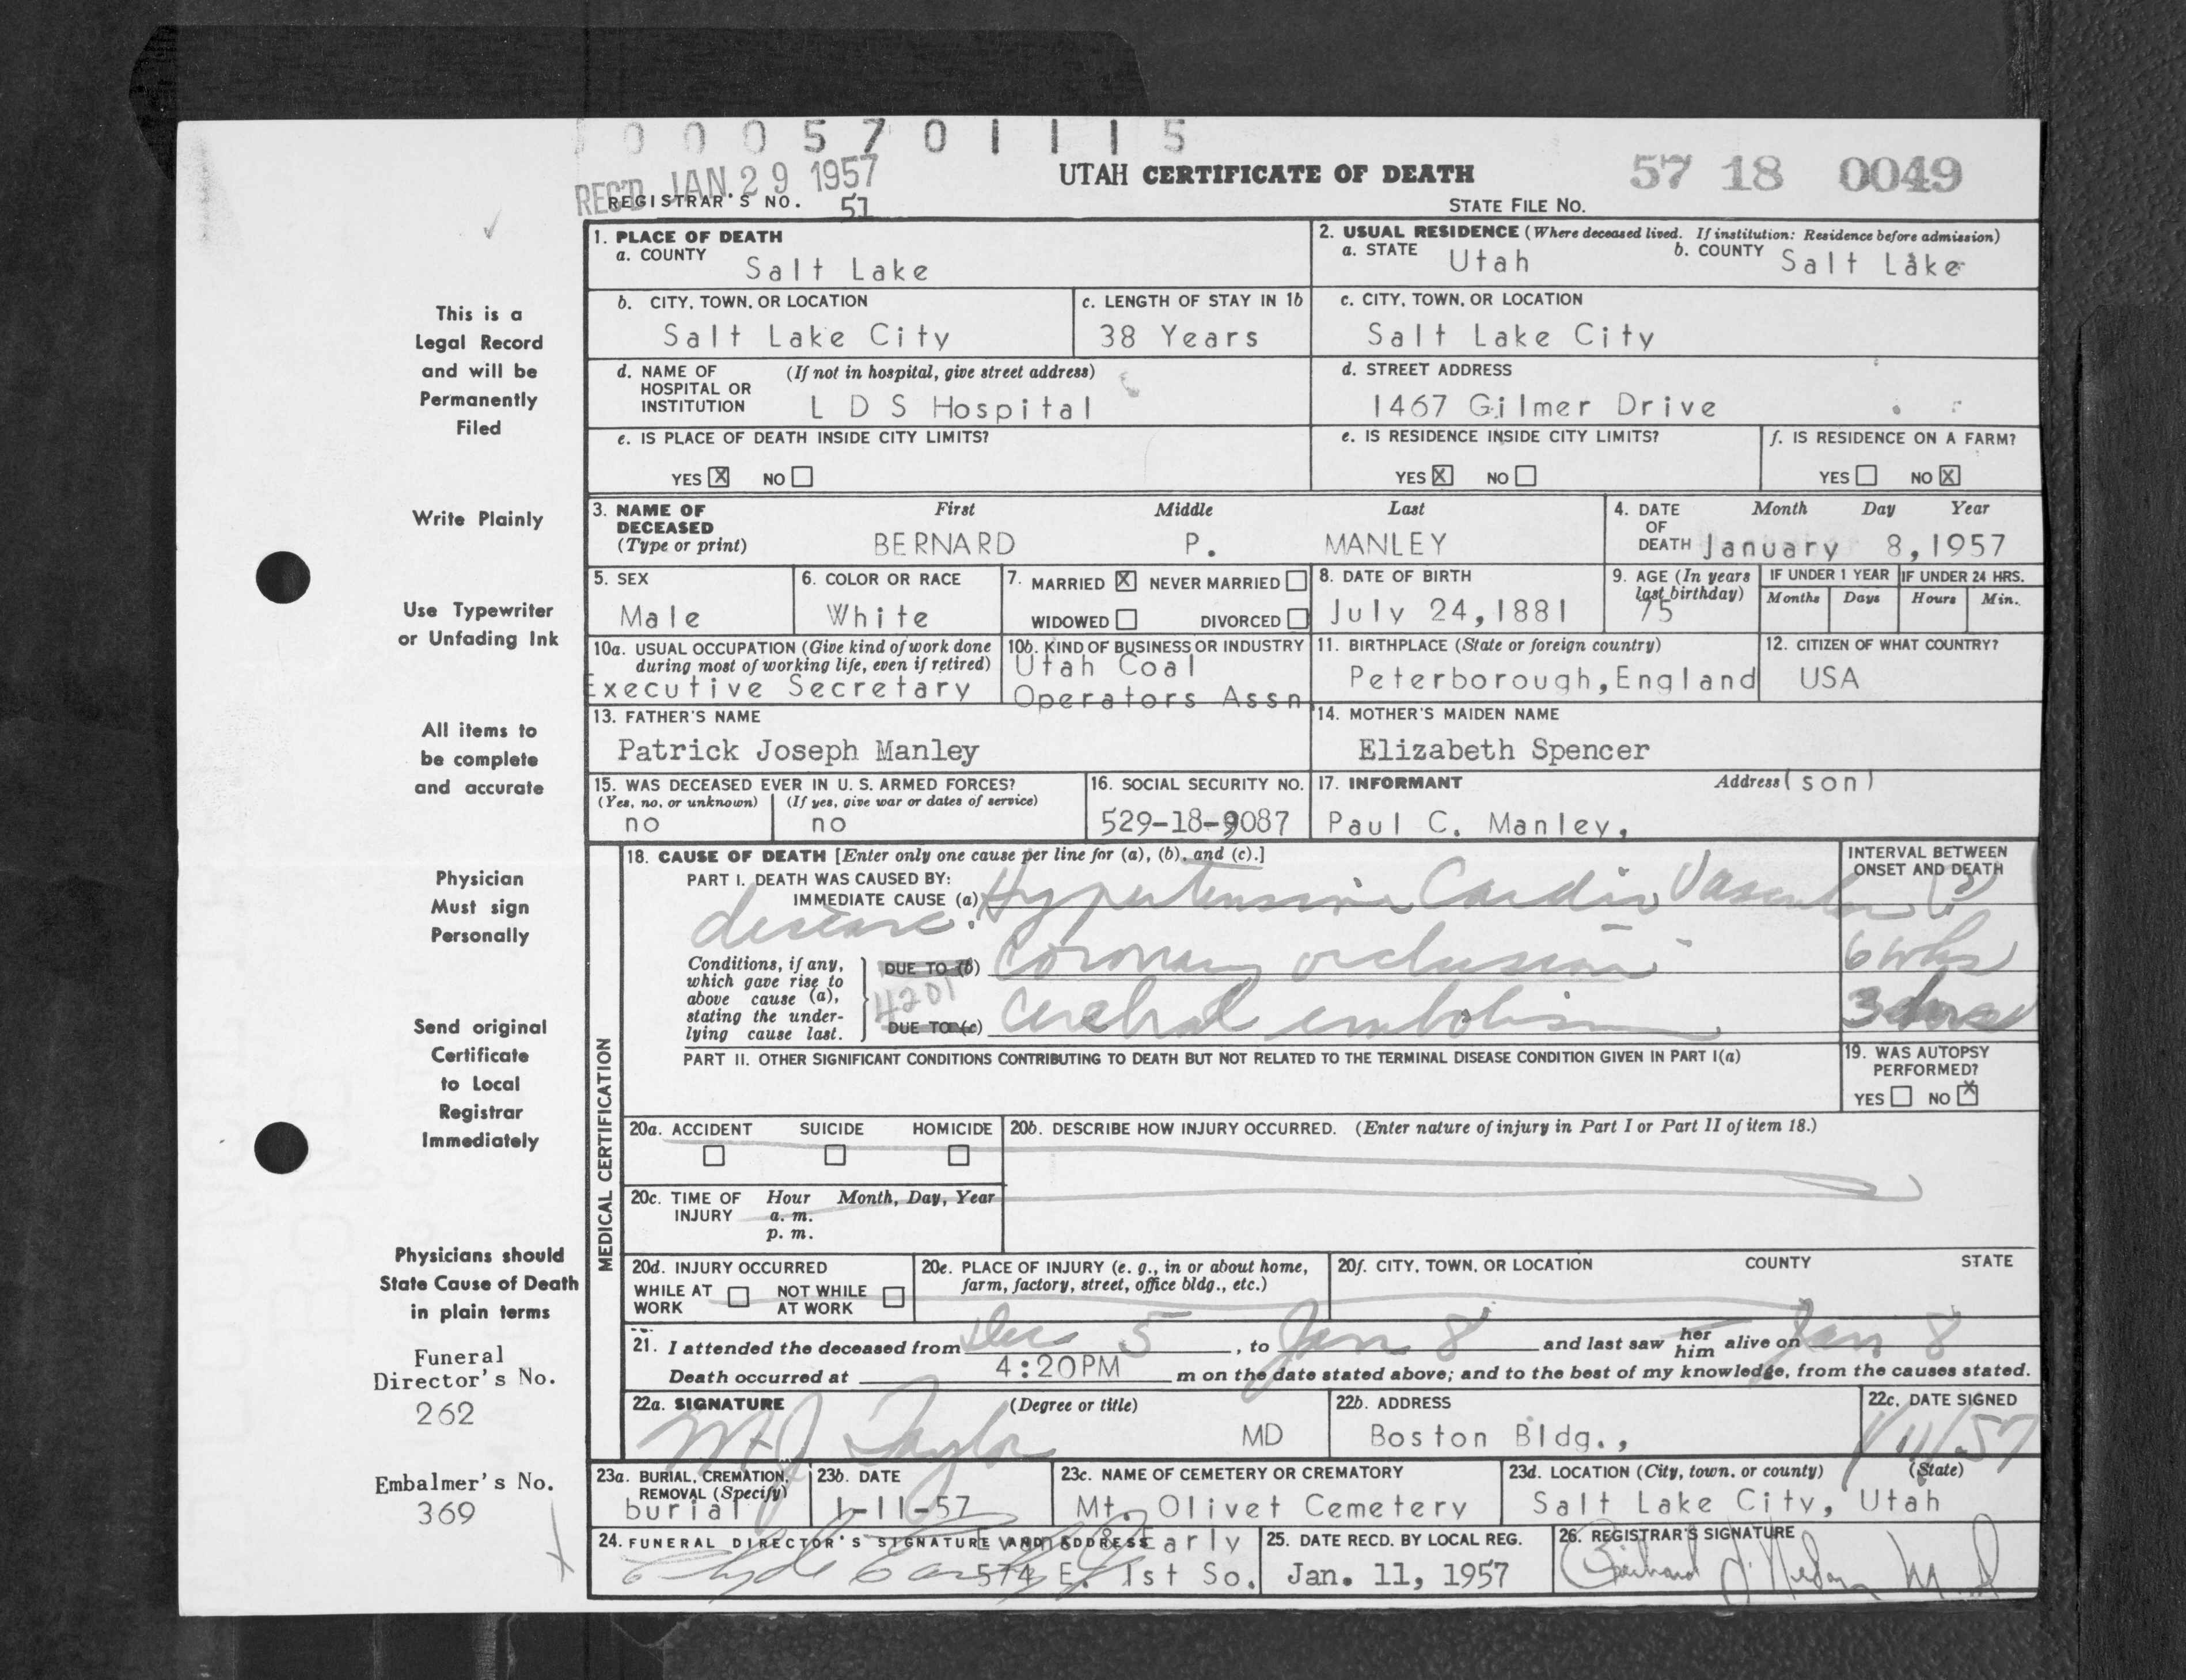 0005701115
REC'D JAN. 29 1957
UTAH CERTIFICATE OF DEATH
57 18 0049
REGISTRAR'S NO. 51
STATE FILE NO.
This is a
Legal Record
and will be
Permanently
Filed
Write Plainly
Use Typewriter
or Unfading Ink
All items to
be complete
and accurate
Physician
Must sign
Personally
Send original
Certificate
to Local
Registrar
Immediately
Physicians should
State Cause of Death
in plain terms
Funeral
Director's No.
262
Embalmer's No.
369
1. PLACE OF DEATH
a. COUNTY
Salt Lake
2. USUAL RESIDENCE (Where deceased lived. If institution: Residence before admission)
a. STATE Utah b. COUNTY Salt Lake
b. CITY, TOWN, OR LOCATION
Salt Lake City
c. LENGTH OF STAY IN 1b
38 Years
c. CITY, TOWN, OR LOCATION
Salt Lake City
d. NAME OF (If not in hospital, give street address)
HOSPITAL OR
INSTITUTION L D S Hospital
d. STREET ADDRESS
1467 Gilmer Drive
e. IS PLACE OF DEATH INSIDE CITY LIMITS?
YES X NO
e. IS RESIDENCE INSIDE CITY LIMITS?
YES X NO
f. IS RESIDENCE ON A FARM?
YES NO X
3. NAME OF First Middle Last
DECEASED
(Type or print) BERNARD P. MANLEY
4. DATE Month Day Year
OF
DEATH January 8, 1957
5. SEX
Male
6. COLOR OR RACE
White
7. MARRIED X NEVER MARRIED
WIDOWED DIVORCED
8. DATE OF BIRTH
July 24, 1881
9. AGE (In years
last birthday)
75
IF UNDER 1 YEAR IF UNDER 24 HRS.
Months Days Hours Min.
10a. USUAL OCCUPATION (Give kind of work done
during most of working life, even if retired)
Executive Secretary
10b. KIND OF BUSINESS OR INDUSTRY
Utah Coal
Operators Assn
11. BIRTHPLACE (State or foreign country)
Peterborough, England
12. CITIZEN OF WHAT COUNTRY?
USA
13. FATHER'S NAME
Patrick Joseph Manley
14. MOTHER'S MAIDEN NAME
Elizabeth Spencer
15. WAS DECEASED EVER IN U. S. ARMED FORCES?
(Yes, no, or unknown) (If yes, give war or dates of service)
no no
16. SOCIAL SECURITY NO.
529-18-9087
17. INFORMANT Address (son)
Paul C. Manley,
MEDICAL CERTIFICATION
18. CAUSE OF DEATH [Enter only one cause per line for (a), (b), and (c).]
INTERVAL BETWEEN
ONSET AND DEATH
PART I. DEATH WAS CAUSED BY:
IMMEDIATE CAUSE (a) Hypertensive Cardio Vascular (?)
disease.
Conditions, if any,
which gave rise to
above cause (a),
stating the under-
lying cause last.
DUE TO (b) Coronary occlusion 6 wks
4201
DUE TO (c) Cerebral embolism 3 days
PART II. OTHER SIGNIFICANT CONDITIONS CONTRIBUTING TO DEATH BUT NOT RELATED TO THE TERMINAL DISEASE CONDITION GIVEN IN PART I(a)
19. WAS AUTOPSY
PERFORMED?
YES NO X
20a. ACCIDENT SUICIDE HOMICIDE
20b. DESCRIBE HOW INJURY OCCURRED. (Enter nature of injury in Part I or Part II of item 18.)
20c. TIME OF Hour Month, Day, Year
INJURY a. m.
p. m.
20d. INJURY OCCURRED
WHILE AT NOT WHILE
WORK AT WORK
20e. PLACE OF INJURY (e. g., in or about home,
farm, factory, street, office bldg., etc.)
20f. CITY, TOWN, OR LOCATION COUNTY STATE
21. I attended the deceased from Dec 5, to Jan 8 and last saw her him alive on Jan 8
Death occurred at 4:20PM m on the date stated above; and to the best of my knowledge, from the causes stated.
22a. SIGNATURE (Degree or title)
M J Taylor MD
22b. ADDRESS
Boston Bldg.,
22c. DATE SIGNED
1/11/57
23a. BURIAL, CREMATION,
REMOVAL (Specify)
burial
23b. DATE
1-11-57
23c. NAME OF CEMETERY OR CREMATORY
Mt. Olivet Cemetery
23d. LOCATION (City, town, or county) (State)
Salt Lake City, Utah
24. FUNERAL DIRECTOR'S SIGNATURE AND ADDRESS
Evans & Early
Clyde Early 574 E. 1st So.
25. DATE RECD. BY LOCAL REG.
Jan. 11, 1957
26. REGISTRAR'S SIGNATURE